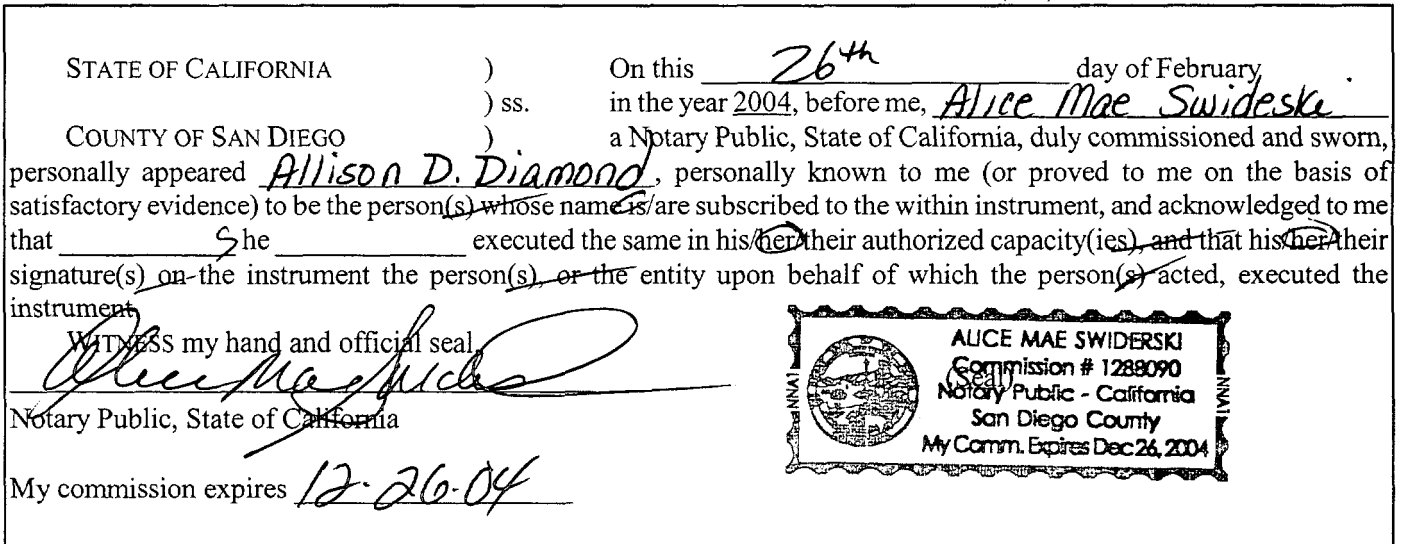 STATE OF CALIFORNIA ) On this 26th day of February,
) ss. in the year 2004, before me, Alice Mae Swideski
COUNTY OF SAN DIEGO ) a Notary Public, State of California, duly commissioned and sworn,
personally appeared Allison D. Diamond, personally known to me (or proved to me on the basis of
satisfactory evidence) to be the person(s) whose name is/are subscribed to the within instrument, and acknowledged to me
that She executed the same in his/her/their authorized capacity(ies), and that his/her/their
signature(s) on the instrument the person(s), or the entity upon behalf of which the person(s) acted, executed the
instrument.
WITNESS my hand and official seal.
Notary Public, State of California
My commission expires 12-26-04
ALICE MAE SWIDERSKI
Commission # 1288090
(Seal)
Notary Public - California
San Diego County
My Comm. Expires Dec 26, 2004
NNA1
NNA1